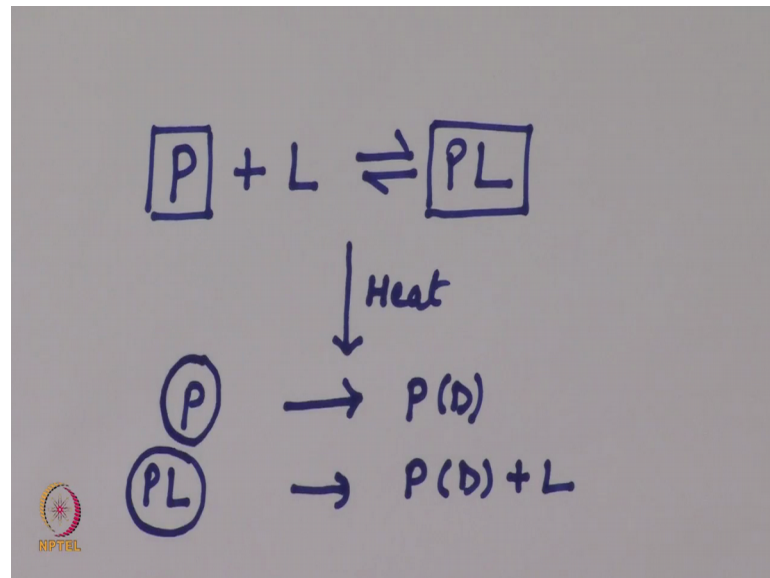 P + L ⇌ PL
Heat
P → P(D)
PL → P(D) + L
NPTEL